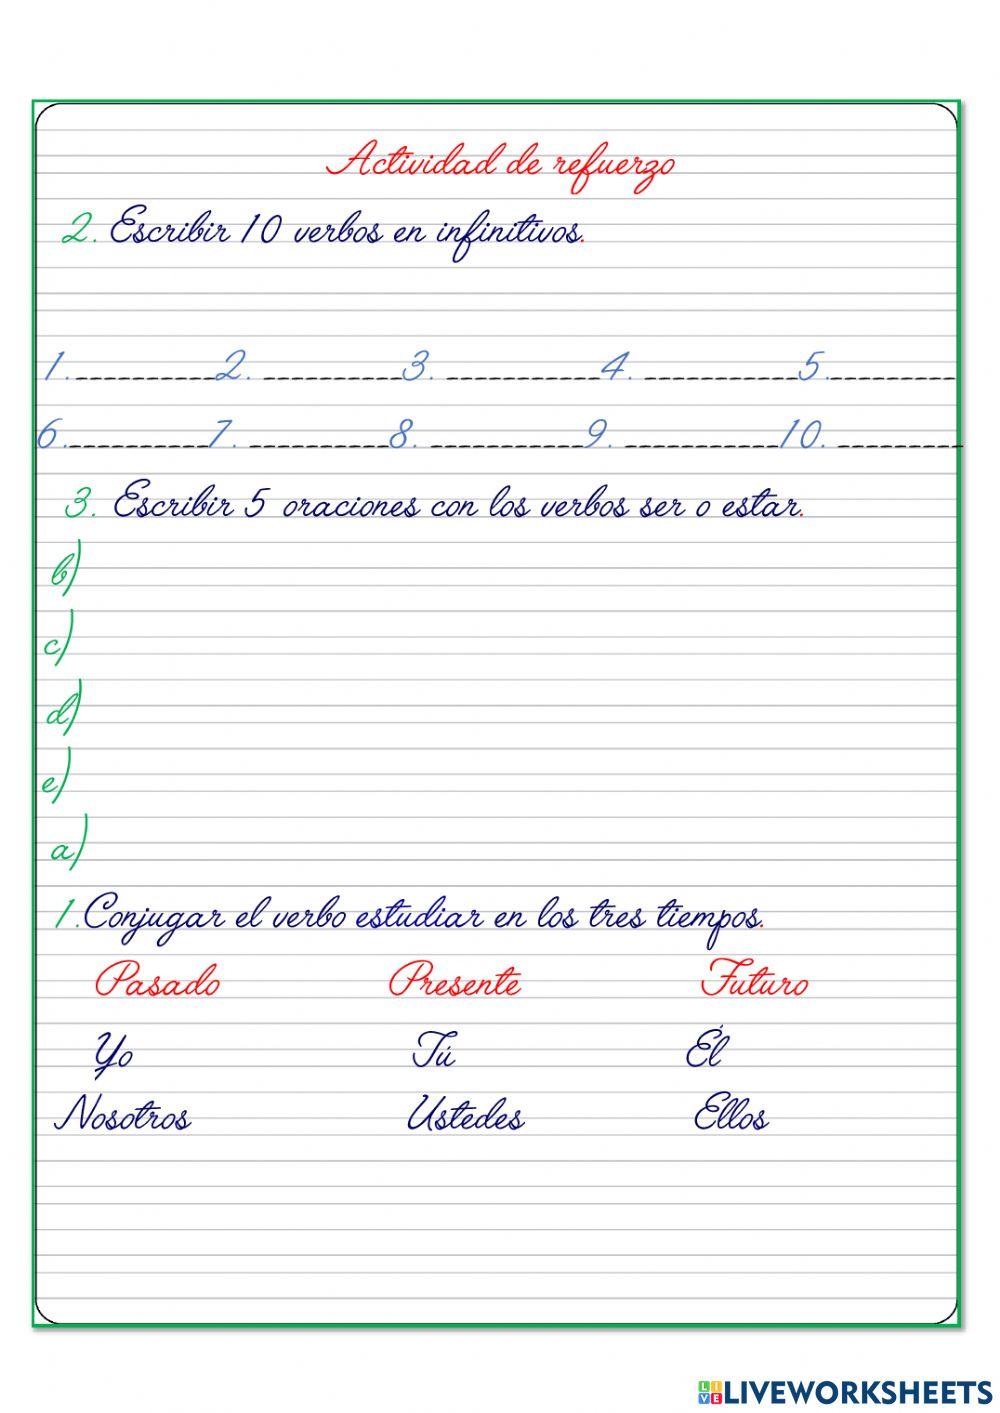 Actividad de refuerzo
2. Escribir 10 verbos en infinitivos.
1.__________2. __________3. __________4. __________5.__________
6.__________7. __________8. __________9. __________10. __________
3. Escribir 5 oraciones con los verbos ser o estar.
b)
c)
d)
e)
a)
1.Conjugar el verbo estudiar en los tres tiempos.
Pasado Presente Futuro
Yo Tú Él
Nosotros Ustedes Ellos
LIVE LIVEWORKSHEETS